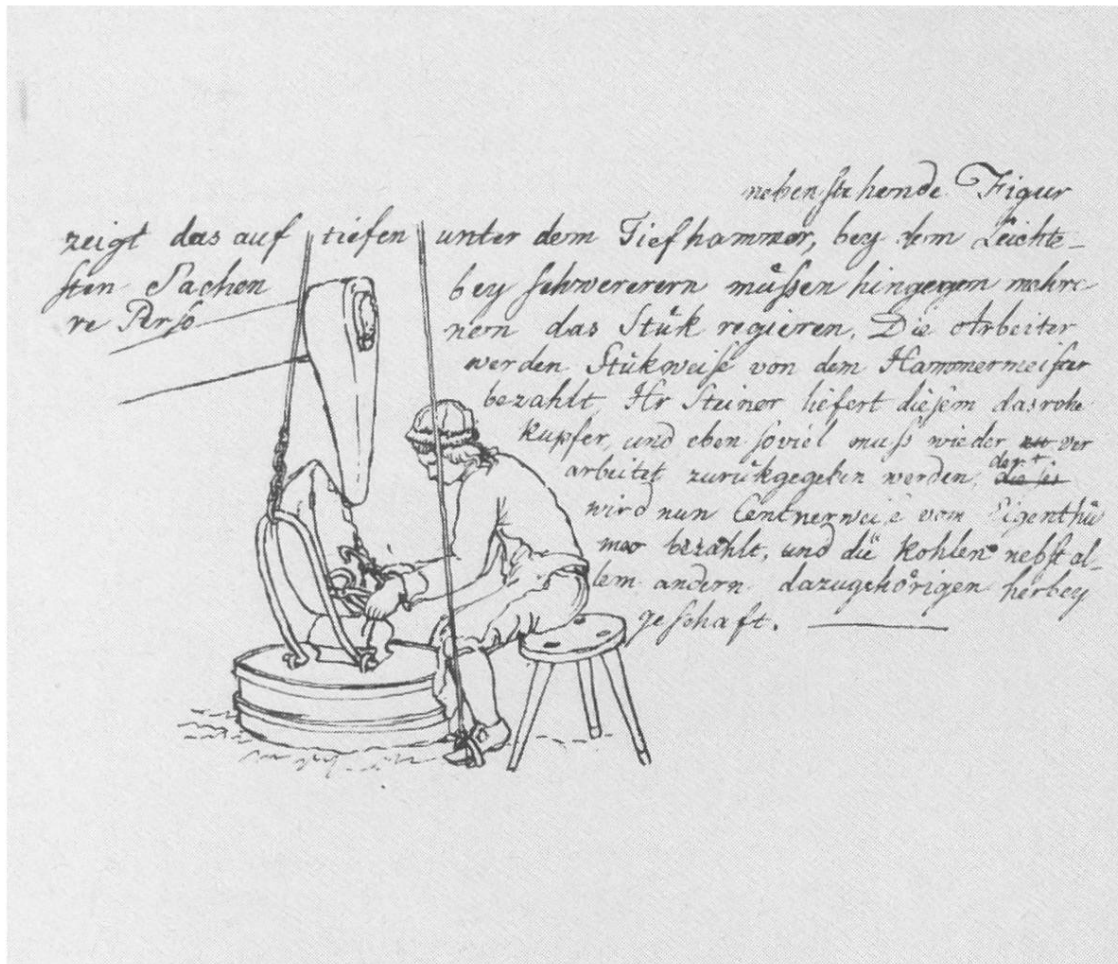 nebenstehende Figur
zeigt das auf tiefen unter dem Tiefhammer, bey dem Leichte-
sten Sachen bey schwererern müssen hingegen mehre
re Perso nen das Stük regieren. Die Arbeiter
werden Stükweise von dem Hammermeister
bezahlt, Hr Steiner liefert diesem das rohe
Kupfer, und eben soviel muss wieder zu ver
arbeitet zurükgegeben werden, der +
wird nun Centnerweise vom Eigenthü
mer bezahlt, und die Kohlen nebst al-
lem andern dazugehörigen herbey
geschaft.